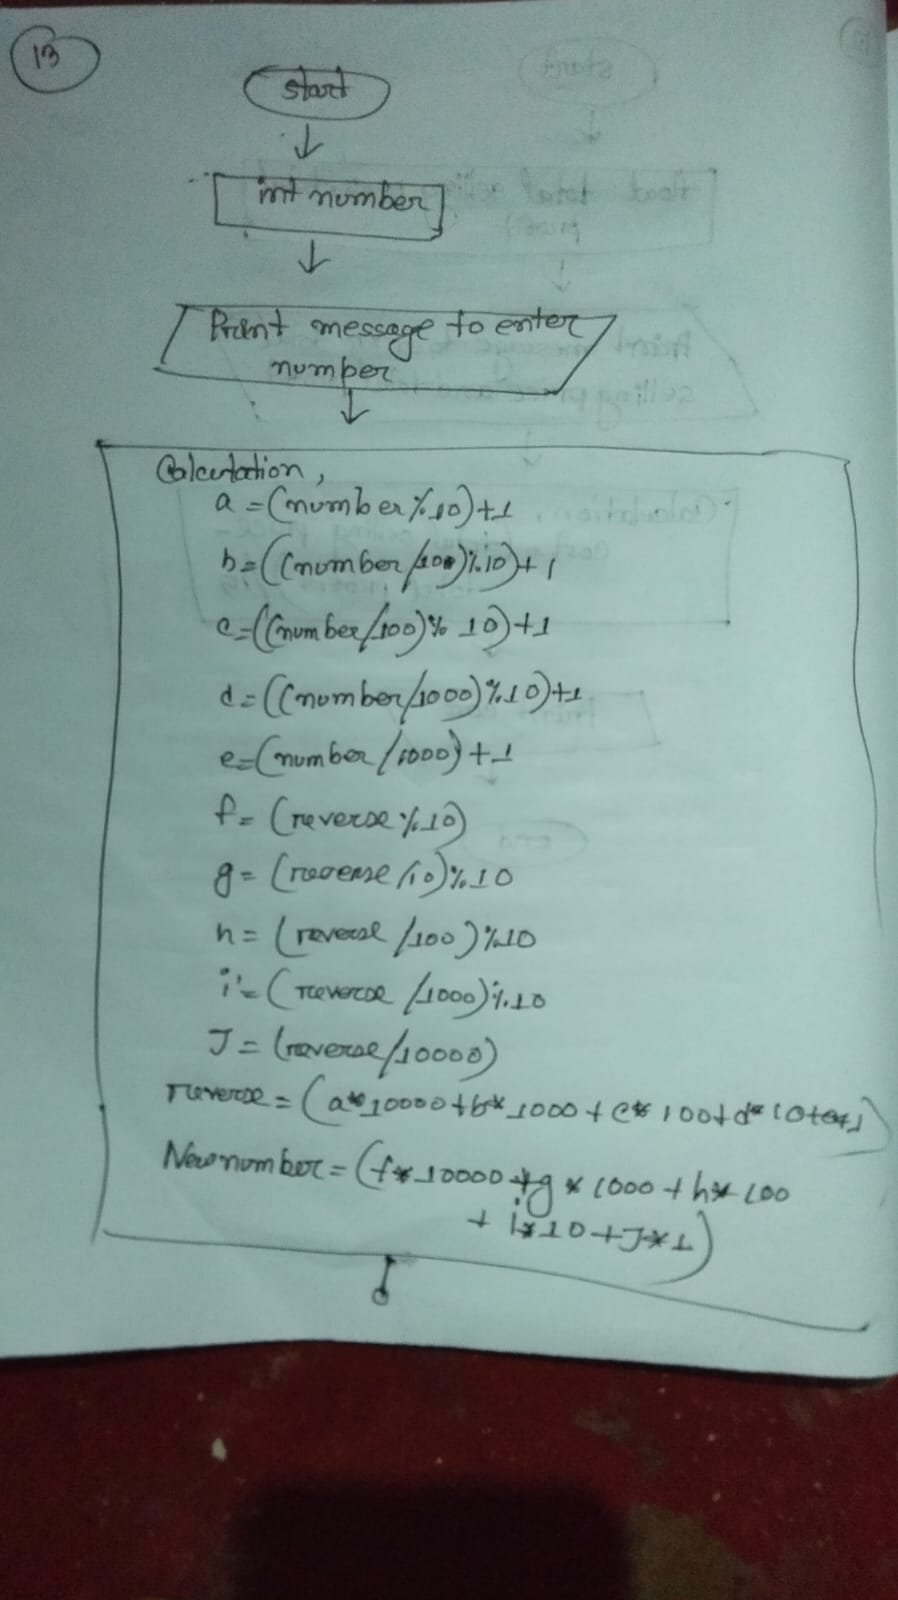 13
start
int number
Print message to enter
number
Calculation,
a = (number%10)+1
b = ((number/100)%10)+1
c = ((number/100)% 10)+1
d = ((number/1000)%10)+1
e = (number/1000)+1
f = (reverse%10)
g = (reverse/10)%10
h = (reverse/100)%10
i = (reverse/1000)%10
J = (reverse/10000)
reverse = (a*10000+b*1000+c*100+d*10+e*1)
New number = (f*10000+g*1000+h*100
+ i*10+J*1)